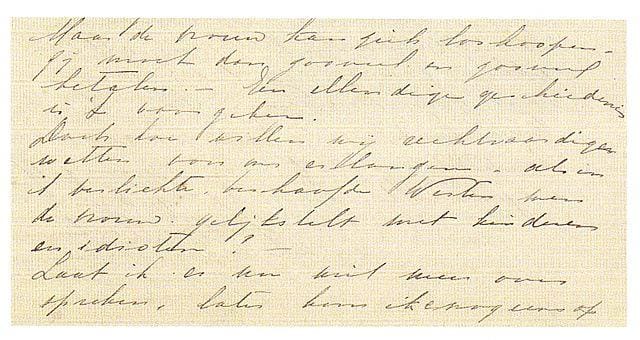 Maar de vrouw kan zich loskoopen.
Zij moet dan zooveel en zooveel
betalen. — Een ellendige geschiedenis
is 't voor
Doch hoe willen wij rechtvaardige
wetten voor ons erlangen, als in
't verlichte, beschaafde Westen men
de vrouw gelijkstelt met kinderen
en idioten? —
Laat ik er nu niet meer over
spreken, later kom ik er nog eens op